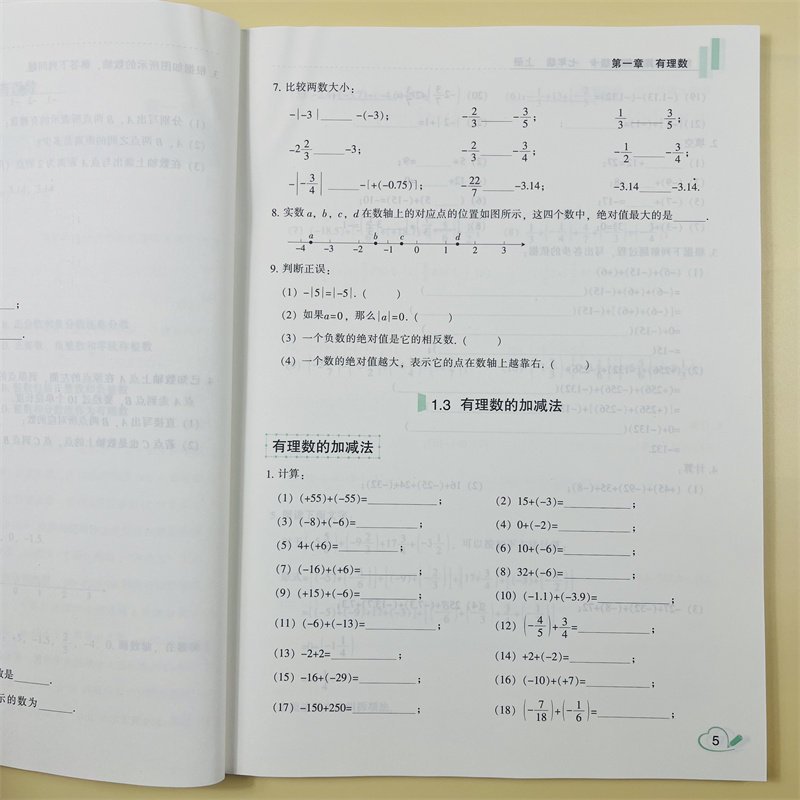 第一章 有理数
7. 比较两数大小:
-|-3|____ -(-3); -2/3 ____ -3/5; 1/3 ____ 3/5;
-2 2/3 ____ -3; -2/3 ____ -3/4; -1/2 ____ -3/4;
-|-3/4| ____ -[+(-0.75)]; -22/7 ____ -3.14; -3.14 ____ -3.14̇.
8. 实数 a, b, c, d 在数轴上的对应点的位置如图所示, 这四个数中, 绝对值最大的是____.
a b c d
-4 -3 -2 -1 0 1 2 3
9. 判断正误:
(1) -|5|=|-5|. ( )
(2) 如果a=0, 那么|a|=0. ( )
(3) 一个负数的绝对值是它的相反数. ( )
(4) 一个数的绝对值越大, 表示它的点在数轴上越靠右. ( )
1.3 有理数的加减法
有理数的加减法
1. 计算:
(1) (+55)+(-55)=____; (2) 15+(-3)=____;
(3) (-8)+(-6)=____; (4) 0+(-2)=____;
(5) 4+(+6)=____; (6) 10+(-6)=____;
(7) (-16)+(+6)=____; (8) 32+(-6)=____;
(9) (+15)+(-6)=____; (10) (-1.1)+(-3.9)=____;
(11) (-6)+(-13)=____; (12) (-4/5)+3/4=____;
(13) -2+2=____; (14) +2+(-2)=____;
(15) -16+(-29)=____; (16) (-10)+(+7)=____;
(17) -150+250=____; (18) (-7/18)+(-1/6)=____;
5
____;
数是____.
示的数为____.